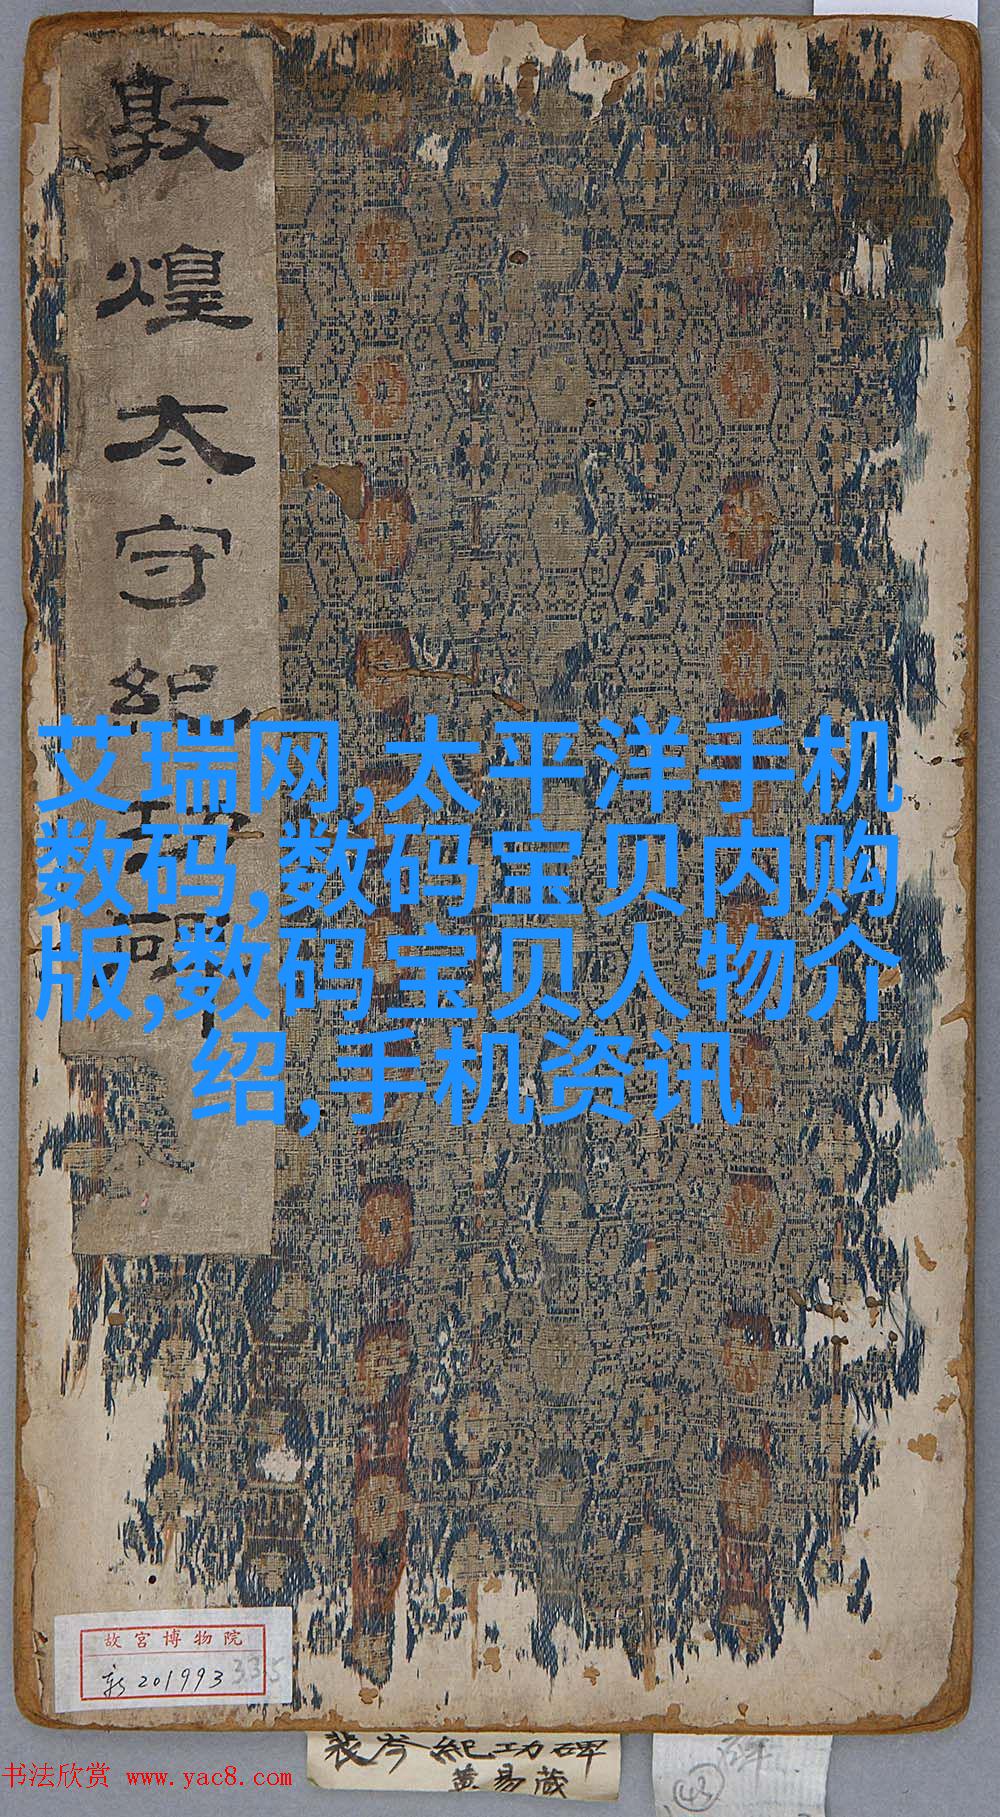 敦煌太守紀功碑
艾瑞网,太平洋手机
数码,数码宝贝内购
版,数码宝贝人物介
绍,手机资讯
故宫博物院
新201993 335
裴岑紀功碑
黄易藏
43
书法欣赏 www.yac8.com